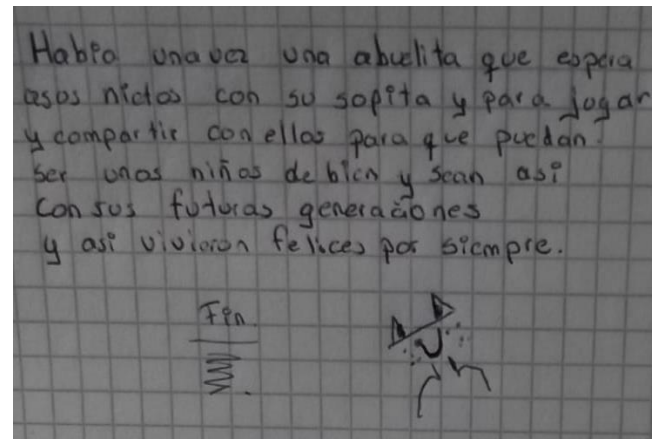 Habia una vez una abuelita que espera
asos nietos con su sopita y para jogar
y compartir con ellos para que puedan
ser unos niños de bien y sean asi
con sus futuras generaciones
y asi vivieron felices por siempre.
Fin.